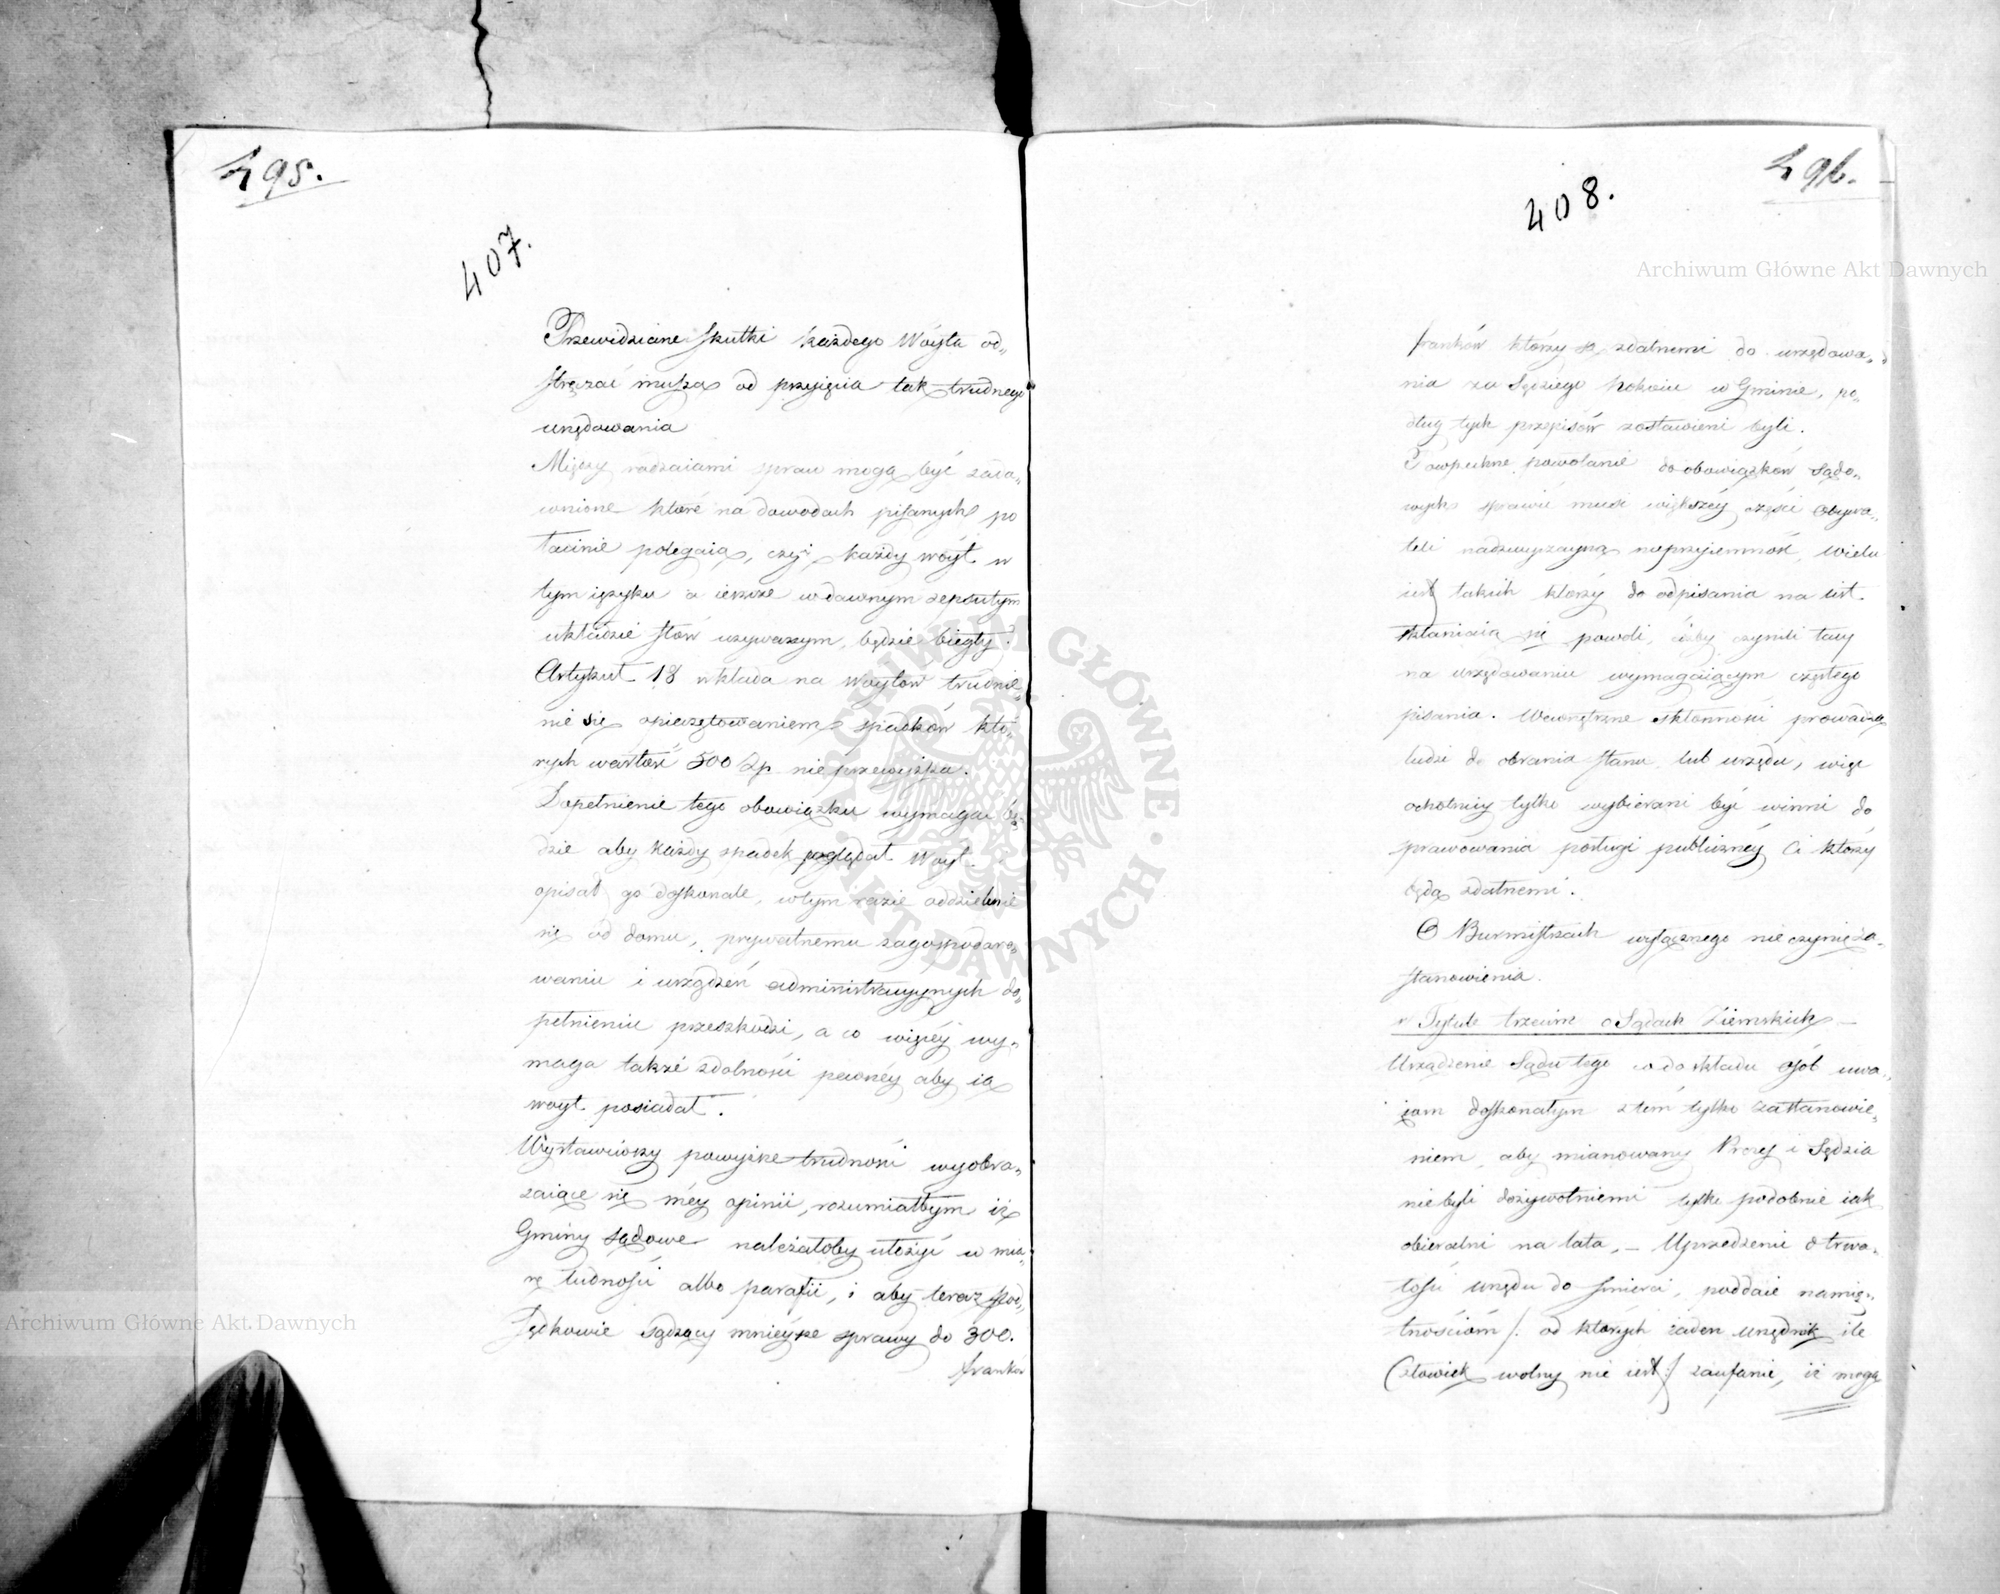 495.
407.
Przewidziane skutki każdego Woyta od„
stręczać muszą od przyięcia tak trudnego
urzędowania
Między rodzaiami spraw mogą być zaia„
wnione które na dowodach pisanych po
łacinie polegaią, czyż każdy woyt w
tym ięzyku a ieszcze w dawnym zepsutym
układzie słów używanym, będzie biegły?
Artykuł 18 wkłada na Woytów trudnie„
nie się opieczętowaniem spadków któ„
rych wartość 500 Zp. nie przewyższa.
Dopełnienie tego obowiązku wymagać bę„
dzie aby każdy spadek oglądał Woyt.
opisał go doskonale, w tym razie oddzielenie
się od domu, prywatnemu zagospodaro„
waniu i urządzeń administracyynych do„
pełnieniu przeszkodzi, a co więcéy wy„
maga także zdolności pewnéy aby ią
woyt posiadał.
Wystawiwszy powyższe trudności wyobra„
zaiące się méy opinii, rozumiałbym iż
Gminy sądowe należałoby ułożyć w mia„
rę ludności albo parafii, i aby teraz Pod„
sędkowie sądzący mnieysze sprawy do 300.
franków
496.
408.
franków którzy są zdatnemi do urzędowa„
nia za Sędziego Pokoiu w Gminie, po„
dług tych przepisów zostawieni byli.
Powszechne powołanie do obowiązków Sądo„
wych sprawić musi większéy części Obywa„
teli nadzwyczayną nieprzyiemność, wielu
iest takich którzy do odpisania na list
skłaniaią się powoli, cóżby czynili tacy
na urzędowaniu wymagaiącym częstego
pisania. Wewnętrzne skłonności prowadzą
ludzi do obrania stanu lub urzędu, więc
ochotnicy tylko wybierani być winni do
sprawowania posługi publicznéy Ci którzy
będą zdatnemi.
O Burmistrzach wyłącznego nie czynię za„
stanowienia.
w Tytule trzecim o Sądach Ziemskich —
Urządzenie Sądu tego co do składu osób uwa„
żam doskonałym z tém tylko zastanowie„
niem, aby mianowany Prezes i Sędzia
nie byli dożywotniemi tylko podobnie iak
obieralni na lata, — Uprzedzenie o trwa„
łości urzędu do śmierci, poddaie namię„
tnościom /: od których żaden urzędnik ile
Człowiek wolny nie iest :/ zaufanie, iż mogą
Archiwum Główne Akt Dawnych
Archiwum Główne Akt Dawnych
ARCHIWUM GŁÓWNE · AKT DAWNYCH ·